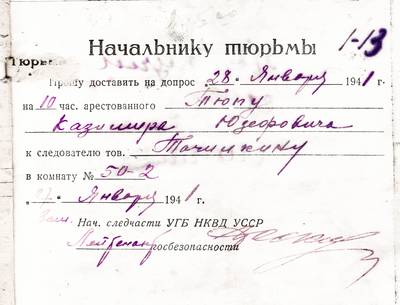 Начальнику тюрьмы 1-13
Тюрьм
Прошу доставить на допрос 28 Января 1941 г.
на 10 час. арестованного Тюпу
Казимира Юзефовича
к следователю тов. Точилкину
в комнату № 50-2
27 Января 1941 г.
Зам. Нач. следчасти УГБ НКВД УССР
Лейтенант госбезопасности